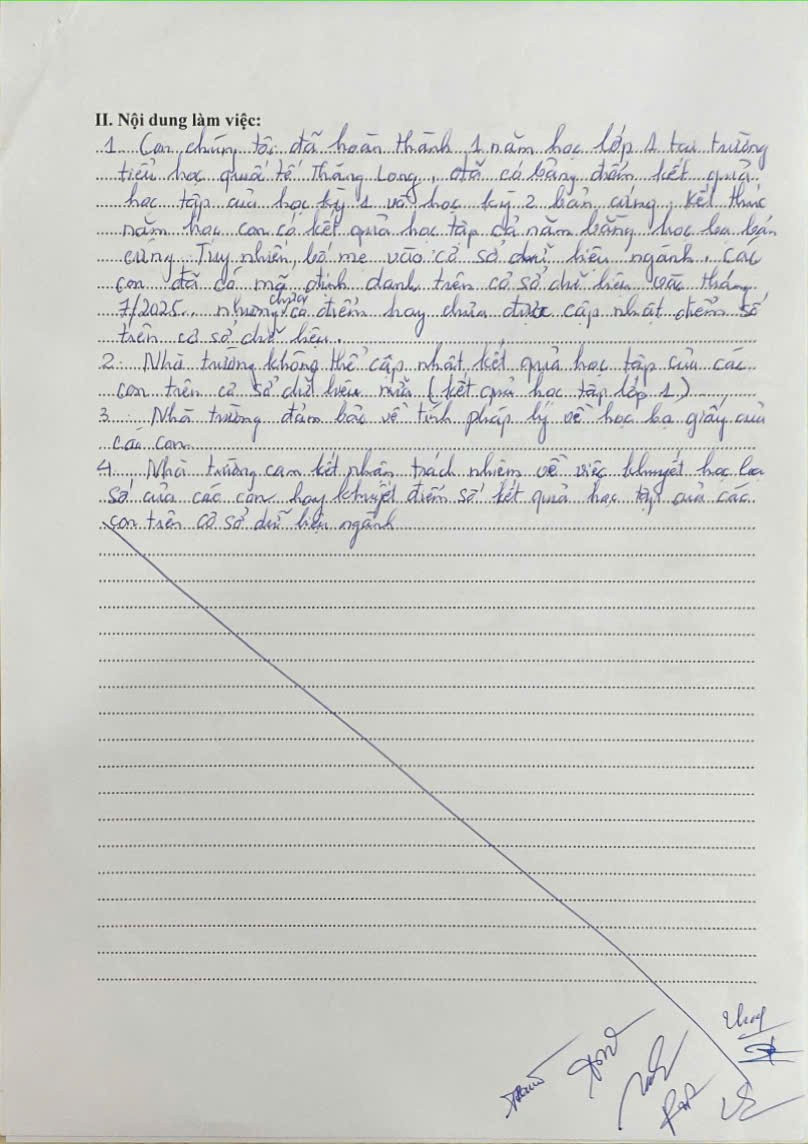 II. Nội dung làm việc:
1. Con chúng tôi đã hoàn thành 1 năm học lớp 1 tại trường
tiểu học quốc tế Thăng Long, đã có bảng điểm kết quả
học tập của học kỳ 1 và học kỳ 2 bản cứng. Kết thúc
năm học con có kết quả học tập cả năm bằng học bạ bản
cứng. Tuy nhiên, bố mẹ vào cơ sở dữ liệu ngành, các
con đã có mã định danh trên cơ sở dữ liệu vào tháng
7/2025. nhưng chưa có điểm hay chưa được cập nhật điểm số
trên cơ sở dữ liệu.
2. Nhà trường không thể cập nhật kết quả học tập của các
con trên cơ sở dữ liệu nữa (kết quả học tập lớp 1)
3. Nhà trường đảm bảo về tính pháp lý về học bạ giấy của
các con.
4. Nhà trường cam kết nhận trách nhiệm về việc khuyết học bạ
số của các con hay khuyết điểm số kết quả học tập của các
con trên cơ sở dữ liệu ngành